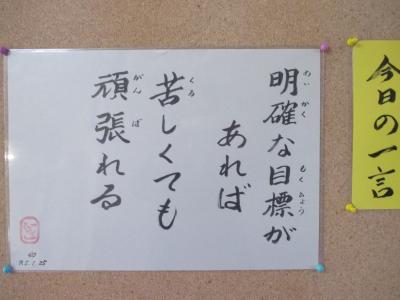 今日の一言
明確な目標が
あれば
苦しくても
頑張れる
めいかく
もくひょう
くる
がんば